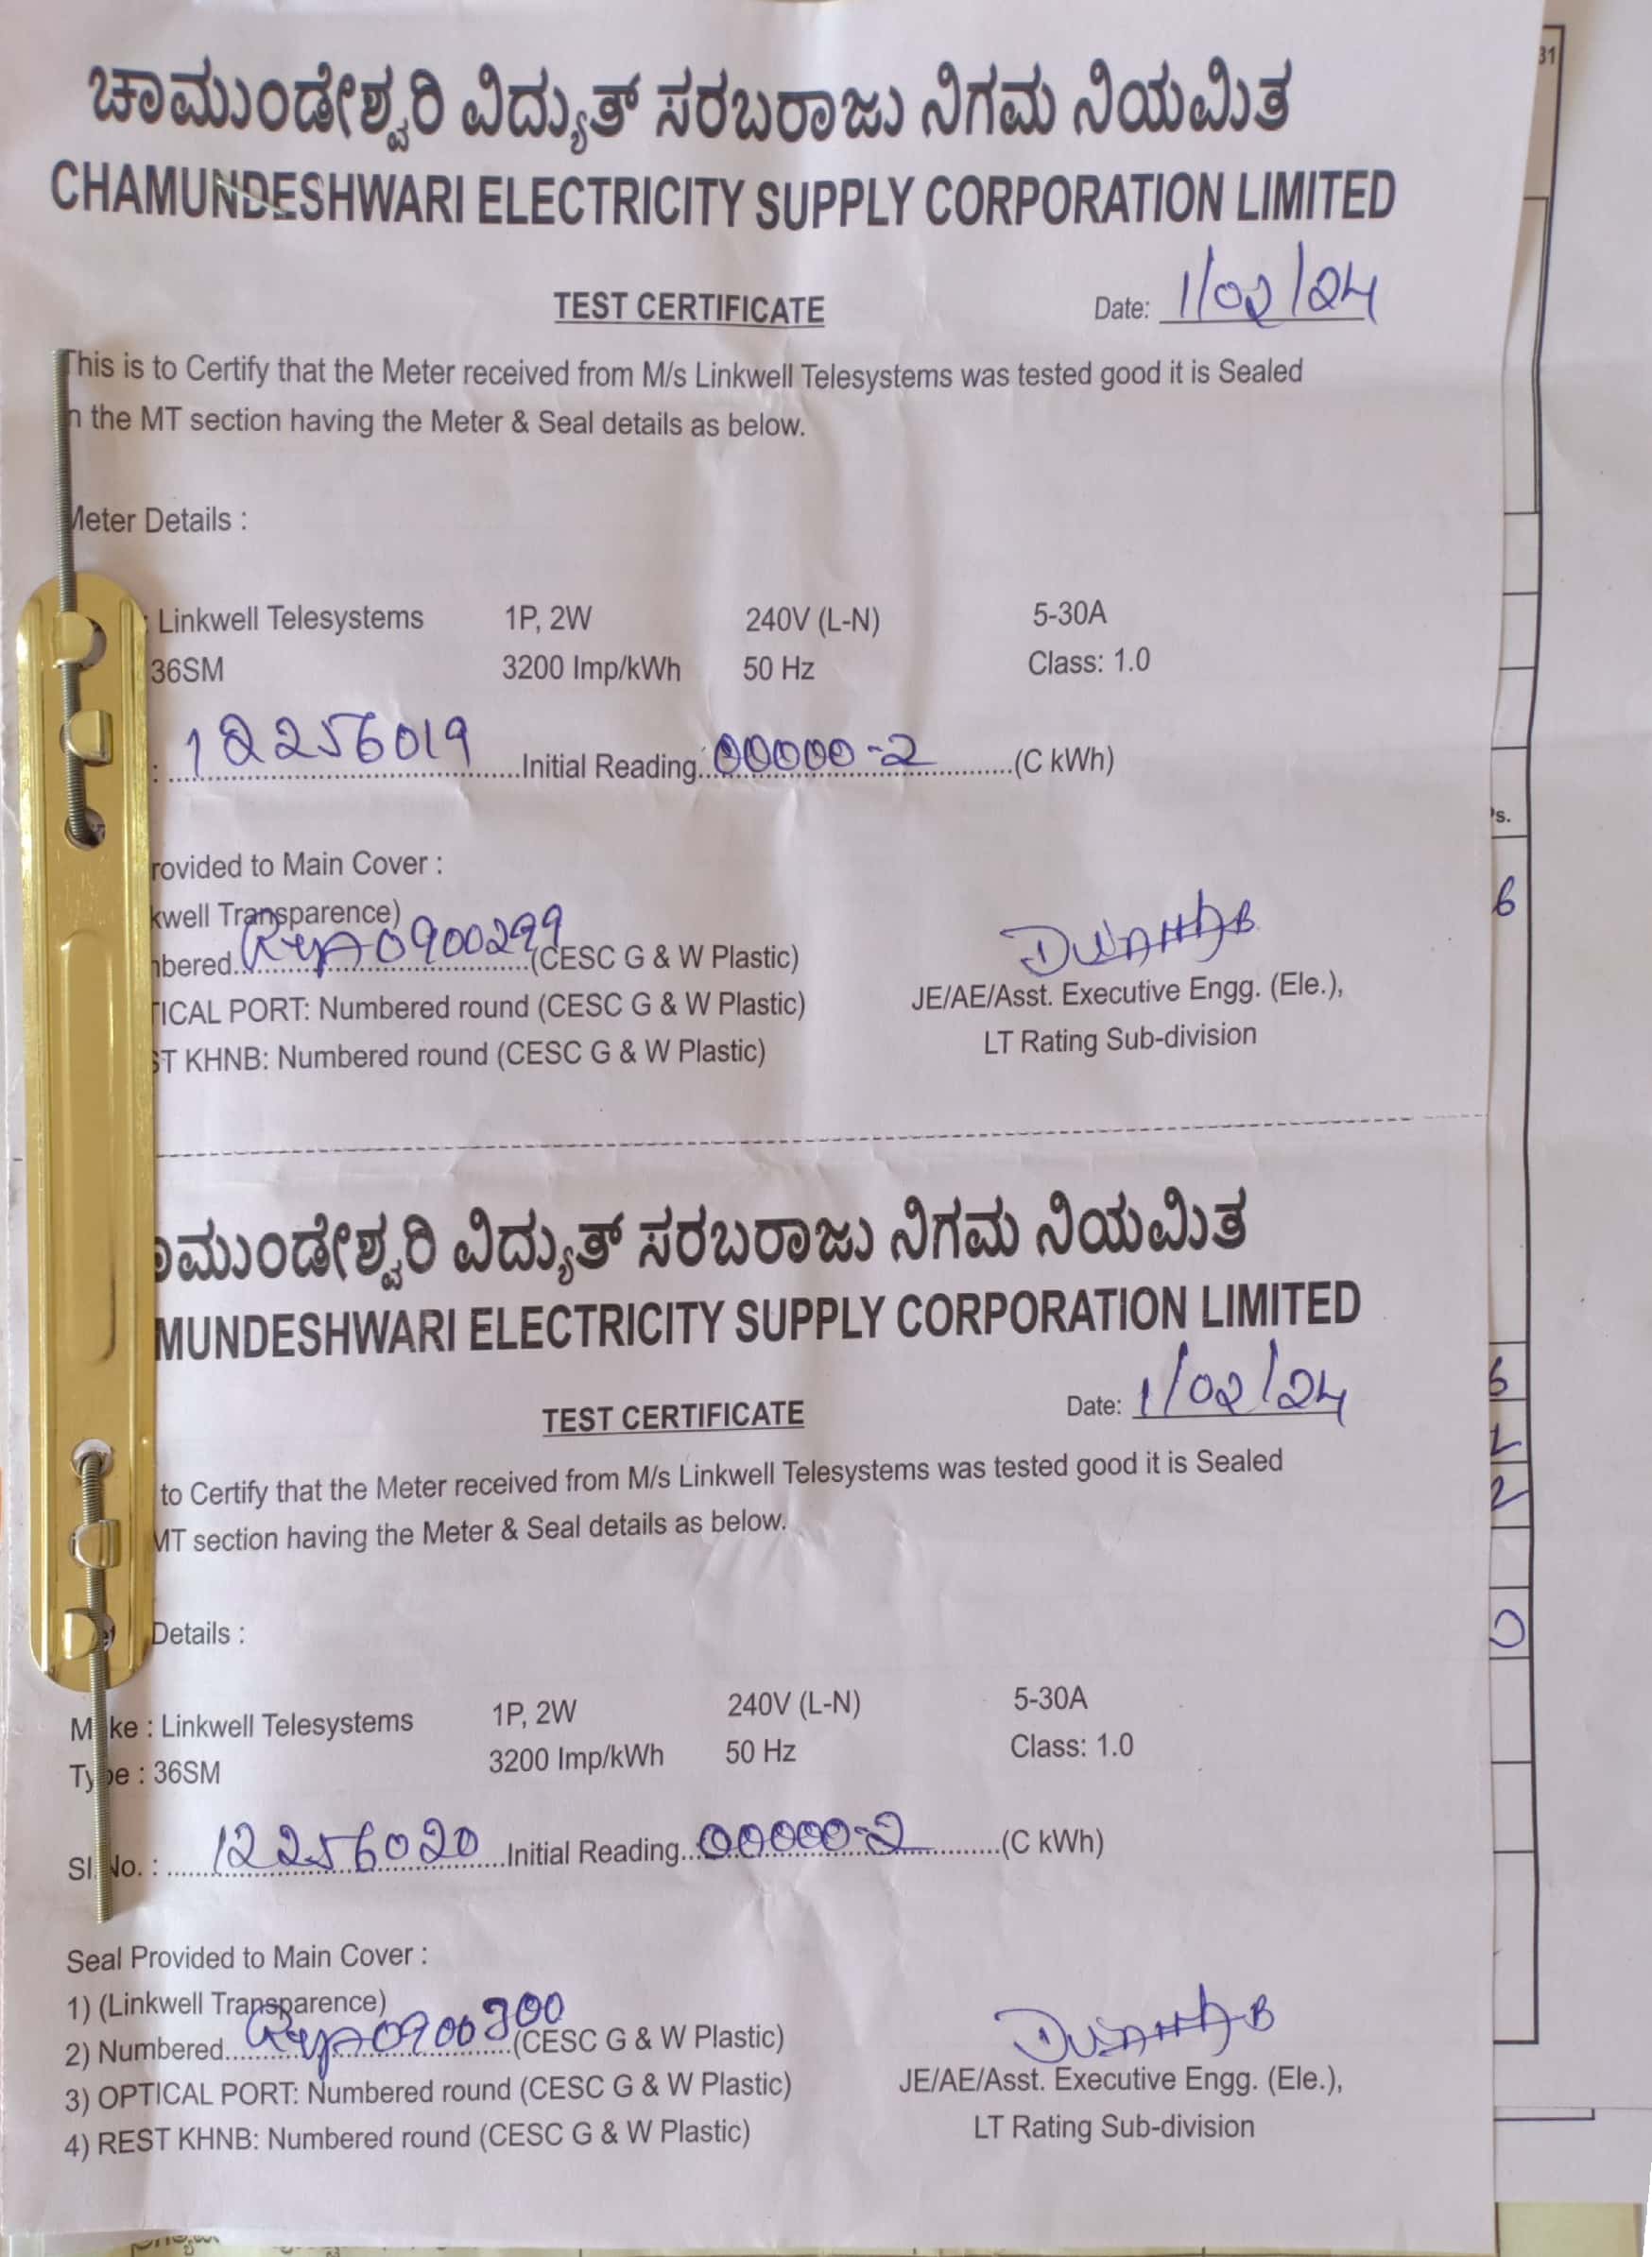 ಚಾಮುಂಡೇಶ್ವರಿ ವಿದ್ಯುತ್ ಸರಬರಾಜು ನಿಗಮ ನಿಯಮಿತ
CHAMUNDESHWARI ELECTRICITY SUPPLY CORPORATION LIMITED
TEST CERTIFICATE Date: 1/02/24
This is to Certify that the Meter received from M/s Linkwell Telesystems was tested good it is Sealed
n the MT section having the Meter & Seal details as below.
Meter Details :
: Linkwell Telesystems 1P, 2W 240V (L-N) 5-30A
36SM 3200 Imp/kWh 50 Hz Class: 1.0
: 12256019 Initial Reading 00000-2 (C kWh)
rovided to Main Cover :
kwell Transparence)
nbered 0900299 (CESC G & W Plastic)
TICAL PORT: Numbered round (CESC G & W Plastic) JE/AE/Asst. Executive Engg. (Ele.),
ST KHNB: Numbered round (CESC G & W Plastic) LT Rating Sub-division
ಾಮುಂಡೇಶ್ವರಿ ವಿದ್ಯುತ್ ಸರಬರಾಜು ನಿಗಮ ನಿಯಮಿತ
MUNDESHWARI ELECTRICITY SUPPLY CORPORATION LIMITED
TEST CERTIFICATE Date: 1/02/24
to Certify that the Meter received from M/s Linkwell Telesystems was tested good it is Sealed
MT section having the Meter & Seal details as below.
Details :
Make : Linkwell Telesystems 1P, 2W 240V (L-N) 5-30A
Type : 36SM 3200 Imp/kWh 50 Hz Class: 1.0
Sl. No. : 12256020 Initial Reading 00000-2 (C kWh)
Seal Provided to Main Cover :
1) (Linkwell Transparence)
2) Numbered 0900300 (CESC G & W Plastic)
3) OPTICAL PORT: Numbered round (CESC G & W Plastic) JE/AE/Asst. Executive Engg. (Ele.),
4) REST KHNB: Numbered round (CESC G & W Plastic) LT Rating Sub-division